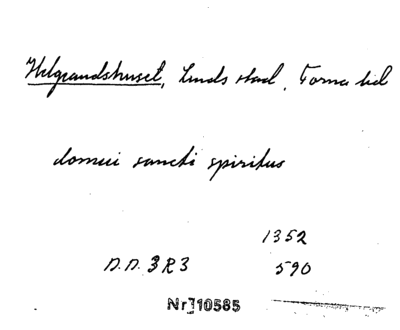 Helgeandshuset, Lunds stad, Torna hd
domui sancti spiritus
1352
D.D. 3 R 3 590
Nr 10585